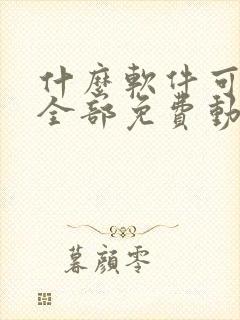 什麼軟件可
全部免費動
暮顏零